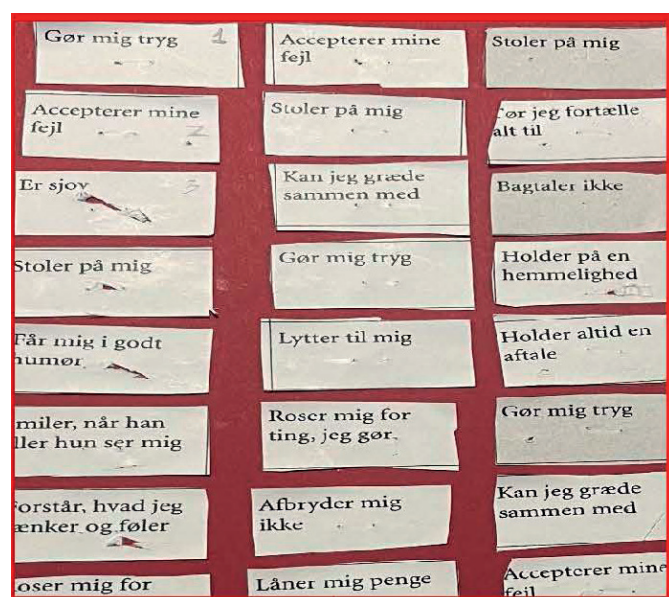 Gør mig tryg 1
Accepterer mine
fejl 2
Er sjov 3
Stoler på mig
Får mig i godt
humør
miler, når han
ller hun ser mig
orstår, hvad jeg
ænker og føler
oser mig for
Accepterer mine
fejl
Stoler på mig
Kan jeg græde
sammen med
Gør mig tryg
Lytter til mig
Roser mig for
ting, jeg gør.
Afbryder mig
ikke
Låner mig penge
Stoler på mig
Tør jeg fortælle
alt til
Bagtaler ikke
Holder på en
hemmelighed
Holder altid en
aftale
Gør mig tryg
Kan jeg græde
sammen med
Accepterer mine
fejl